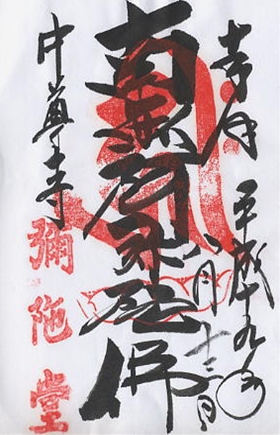 奉拝
平成十九年
八月十三日
南無阿弥陀佛
中尊寺
彌陀堂